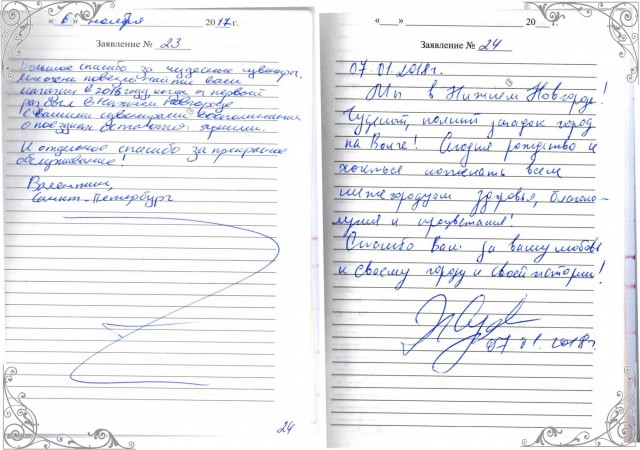 « 6 » ноября 2017 г.
Заявление № 23
Большое спасибо за чудесные сувениры.
Мне очень повезло найти ваш
магазин в 2016 году, когда я первый
раз был в Нижнем Новгороде
С вашими сувенирами воспоминания
о поездках остаются яркими.
И отдельное спасибо за прекрасное
обслуживание!
Валентин,
Санкт-Петербург
24
«___» 20 г.
Заявление № 24
07.01.2018г.
Мы в Нижнем Новгороде!
Чудесный, полный загадок город
на Волге! Сегодня рождество и
хочется пожелать всем
нижегородцам здоровья, благопо-
лучия и процветания!
Спасибо Вам за вашу любовь
к своему городу и своей истории!
07.01.2018г.